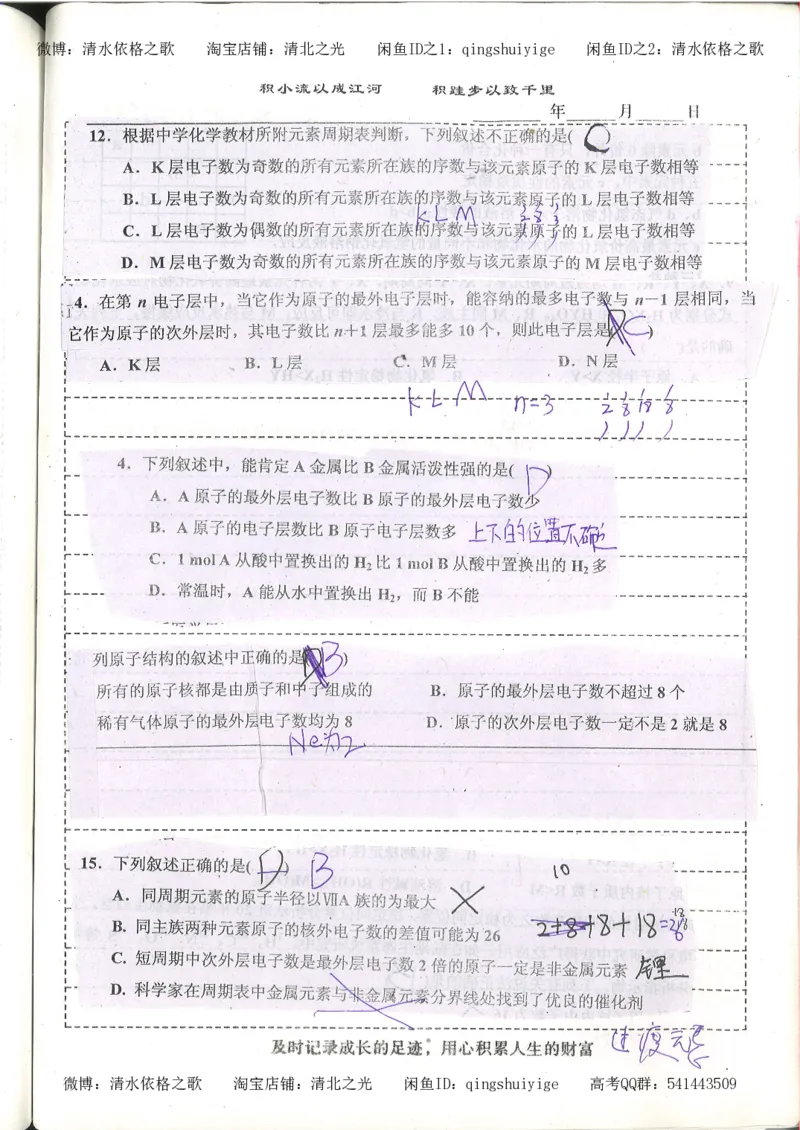 微博：清水依格之歌 淘宝店铺：清北之光 闲鱼ID之1：qingshuiyige 闲鱼ID之2：清水依格之歌
积小流以成江河 积跬步以致千里
年 月 日
12．根据中学化学教材所附元素周期表判断，下列叙述不正确的是( C )
A．K层电子数为奇数的所有元素所在族的序数与该元素原子的K层电子数相等
B．L层电子数为奇数的所有元素所在族的序数与该元素原子的L层电子数相等
K L M 2 8 3
C．L层电子数为偶数的所有元素所在族的序数与该元素原子的L层电子数相等
D．M层电子数为奇数的所有元素所在族的序数与该元素原子的M层电子数相等
4．在第n电子层中，当它作为原子的最外电子层时，能容纳的最多电子数与n－1层相同，当
它作为原子的次外层时，其电子数比n＋1层最多能多10个，则此电子层是( C )
A．K层 B．L层 C．M层 D．N层
K L M n=3 2 8 18 8
4．下列叙述中，能肯定A金属比B金属活泼性强的是( D )
A．A原子的最外层电子数比B原子的最外层电子数少
B．A原子的电子层数比B原子电子层数多 上下的位置不确
C．1 mol A从酸中置换出的H₂比1 mol B从酸中置换出的H₂多
D．常温时，A能从水中置换出H₂，而B不能
列原子结构的叙述中正确的是( B )
所有的原子核都是由质子和中子组成的 B．原子的最外层电子数不超过8个
稀有气体原子的最外层电子数均为8 D．原子的次外层电子数一定不是2就是8
Ne为2
15．下列叙述正确的是( D ) B
10
A．同周期元素的原子半径以ⅦA族的为最大
B．同主族两种元素原子的核外电子数的差值可能为26 2+8+8+18=26
C．短周期中次外层电子数是最外层电子数2倍的原子一定是非金属元素 锂
D．科学家在周期表中金属元素与非金属元素分界线处找到了优良的催化剂
过渡元素
及时记录成长的足迹，用心积累人生的财富
微博：清水依格之歌 淘宝店铺：清北之光 闲鱼ID：qingshuiyige 高考QQ群：541443509